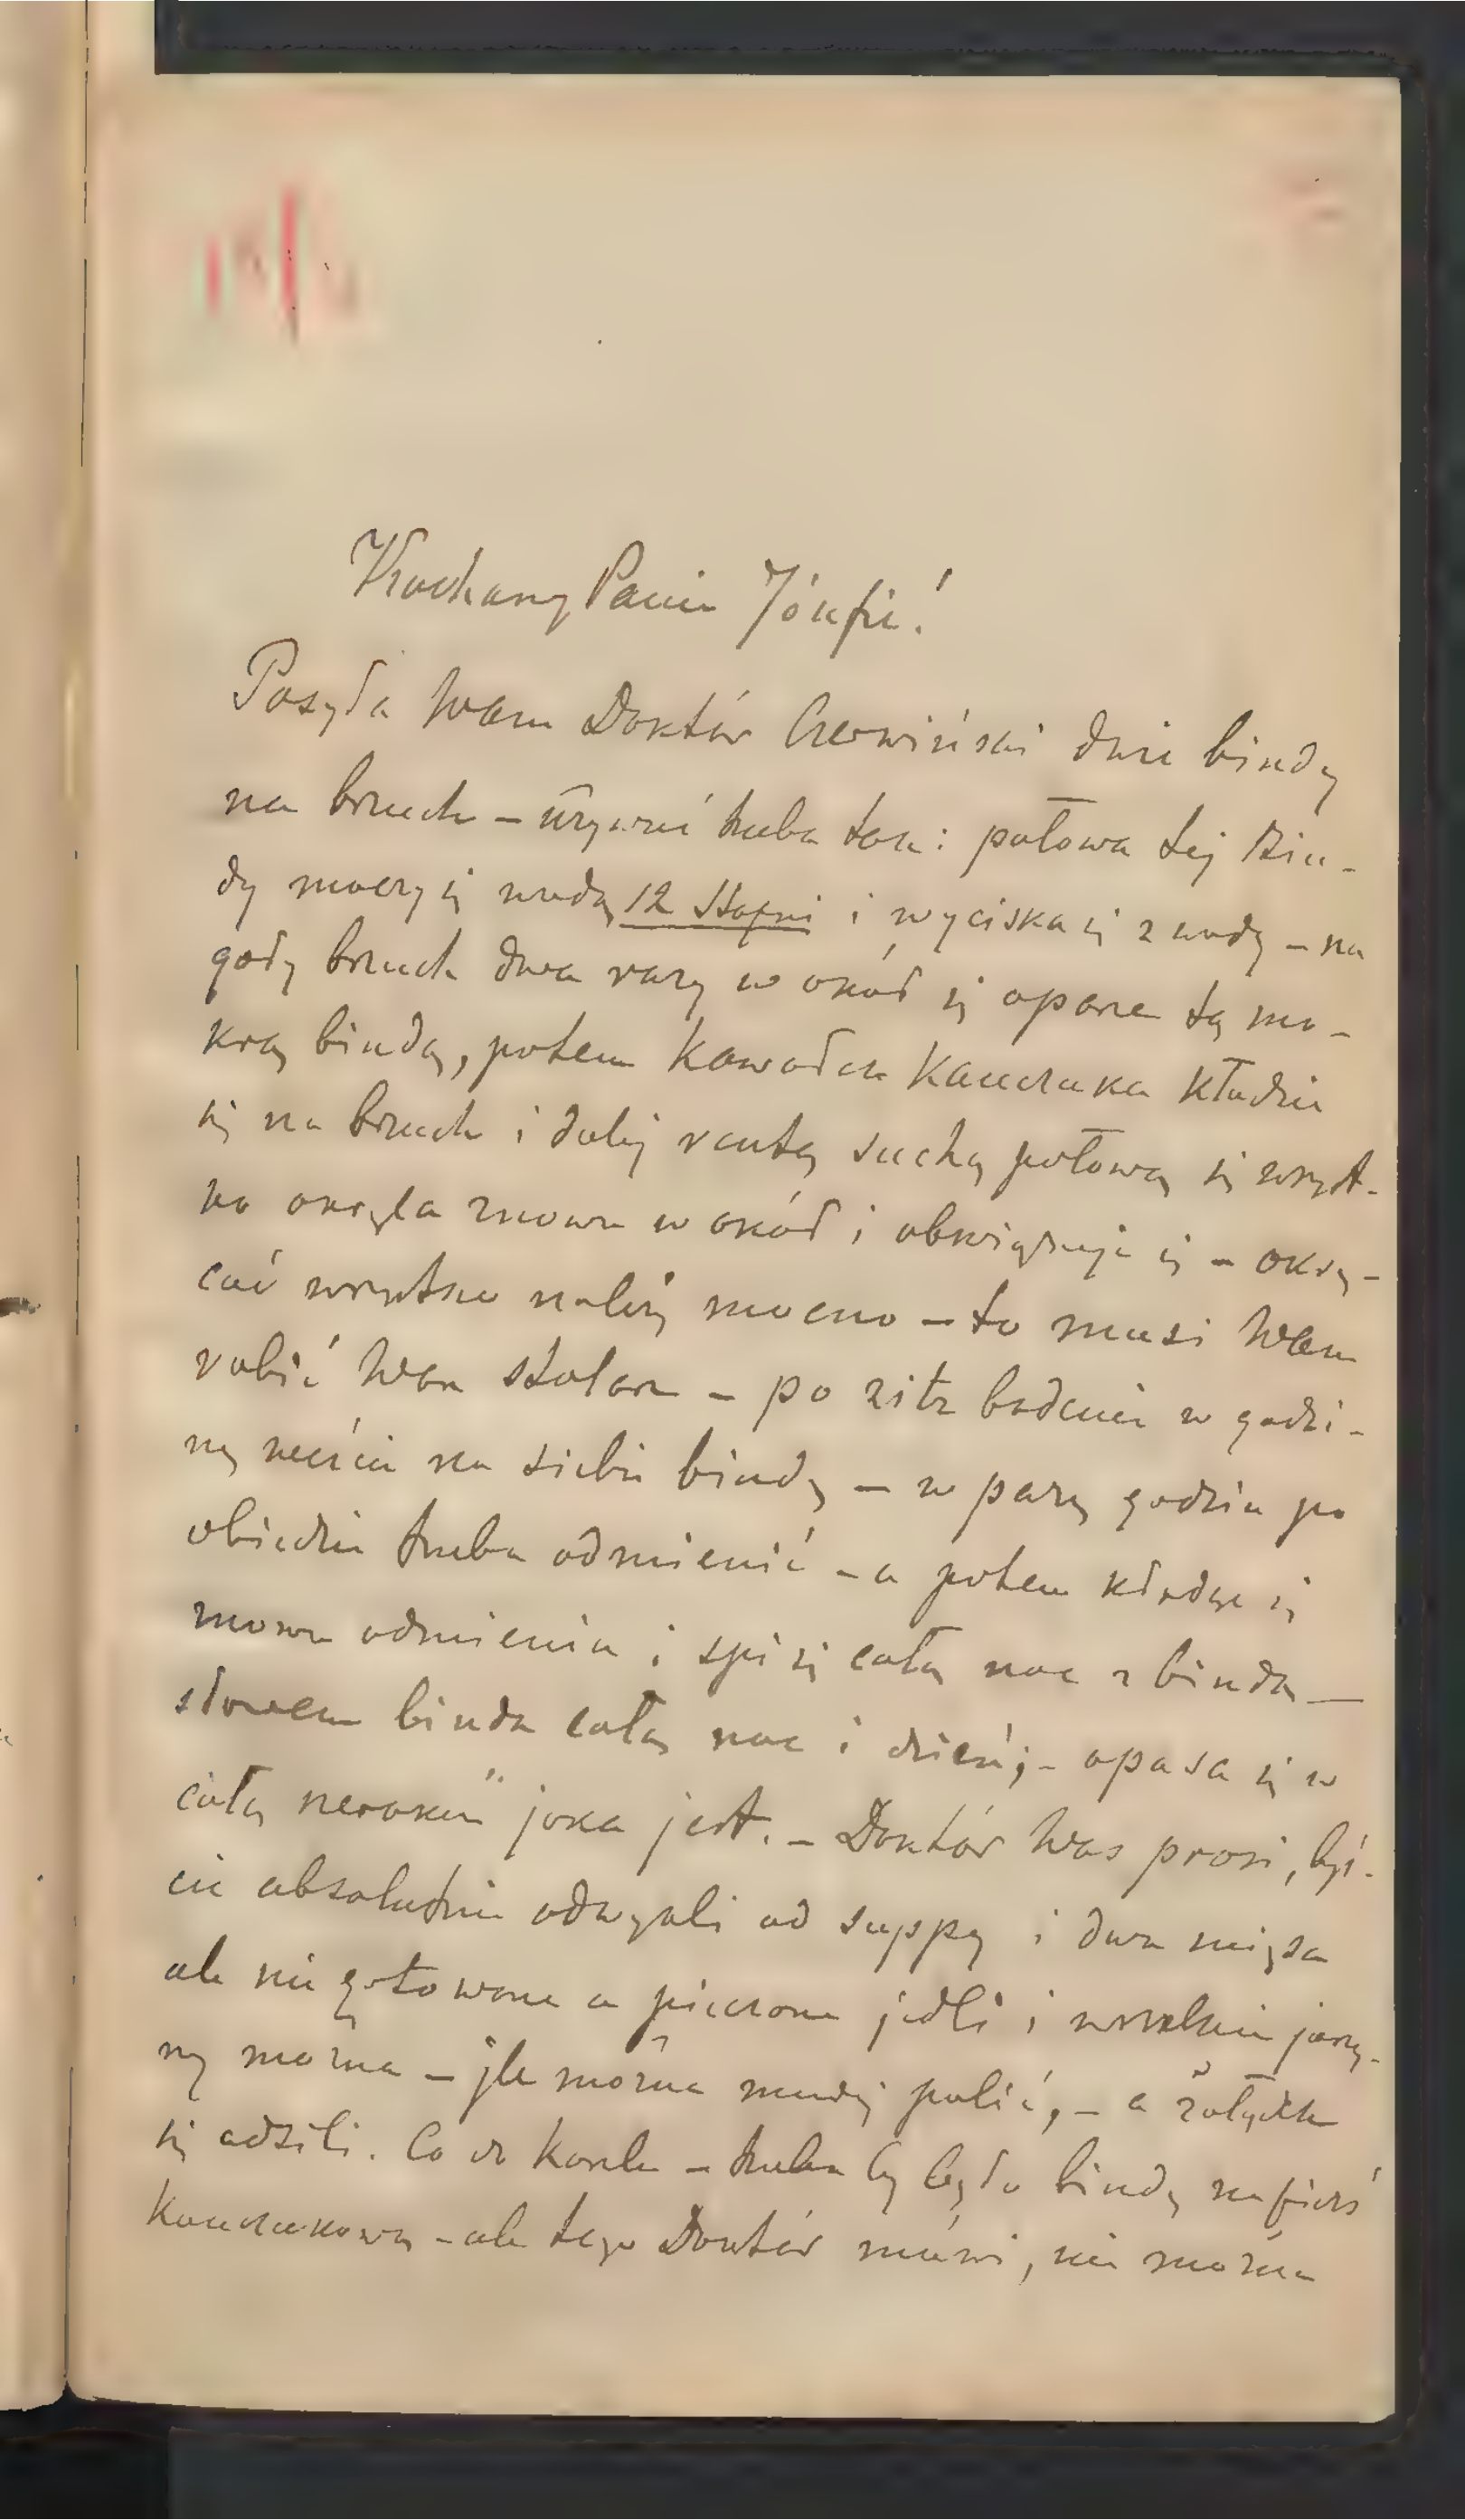 Kochany Panie Józefie!
Posyła Wam Doktór Czerwiński dwie bindy
na brzuch – używać trzeba tak: połowa tej bin-
dy moczy się wodą 12 Stopni i wyciska się z wody – na
goły brzuch dwa razy w okół się opasze tą mo-
krą bindą, potem kawałek kauczuka kładzie
się na brzuch i dalej resztą suchą połową się wszyst-
ko okręca znowu w okół i obwiązuje się – okrę-
cać wszystko należy mocno – to musi Wam
robić Wasz stolarz – po zitz badenie w godzi-
nę weźcie na siebie bindę – w parę godzin po
obiedzie trzeba odmienić – a potem kładąc się
znowu odmienia i śpi się całą noc z bindą –
słowem binda całą noc i dzień; – opasa się w
całą szerokość jaka jest. – Doktór Was prosi, byś-
cie absolutnie odwykli od suppy i dwa mięsa
ale nie gotowane a pieczone jedli i wszelkie jarzy-
ny można – ile można mniej palić, – a żołądek
się odsili. Co do kaszlu – trzeba by było bindę na pierś
kauczukową – ale tego Doktór mówi, nie można